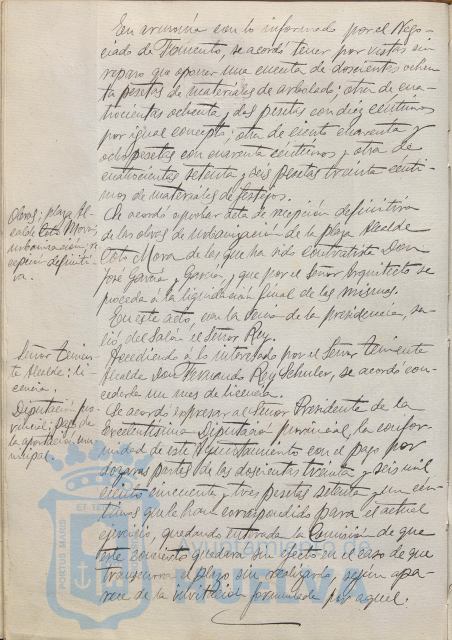 En armonía con lo informado por el Nego-
ciado de Fomento, se acordó tener por vistas sin
reparo que oponer una cuenta de doscientas ochen-
ta pesetas de materiales de arbolado; otra de cua-
trocientas ochenta y dos pesetas con diez céntimos
por igual concepto; otra de ciento cuarenta y
ocho pesetas con cuarenta céntimos y otra de
cuatrocientas setenta y seis pesetas treinta cénti-
mos de materiales de festejos.
Obras; plaza Al-
calde Coto Mora,
urbanización; re-
cepción definiti-
va.
Se acordó aprobar acta de recepción definitiva
de las obras de urbanización de la plaza Alcalde
Coto Mora de las que ha sido contratista Don
José García y García, y que por el Señor Arquitecto se
proceda á la liquidación final de las mismas.
En este acto, con la venia de la presidencia, sa-
lió del Salón el Señor Rey.
Señor Tenien-
te Alcalde; li-
cencia.
Accediendo á lo interesado por el Señor Teniente
Alcalde Don Fernando Rey Schuler, se acordó con-
cederle un mes de licencia.
Diputación pro-
vincial; pago de
la aportación mu-
nicipal.
Se acordó expresar al Señor Presidente de la
Excelentísima Diputación provincial la confor-
midad de este Ayuntamiento con el pago por
dozavas partes de las doscientas treinta y seis mil
ciento cincuenta y tres pesetas setenta y un cén-
timos que le han correspondido para el actual
ejercicio, quedando enterada la Comisión de que
este concierto quedará sin efecto en el caso de que
transcurra el plazo sin realizarlo, según apa-
rece de la invitación formulada por aquel.
PORTUS MARIS
Ayuntamiento de
HUELVA